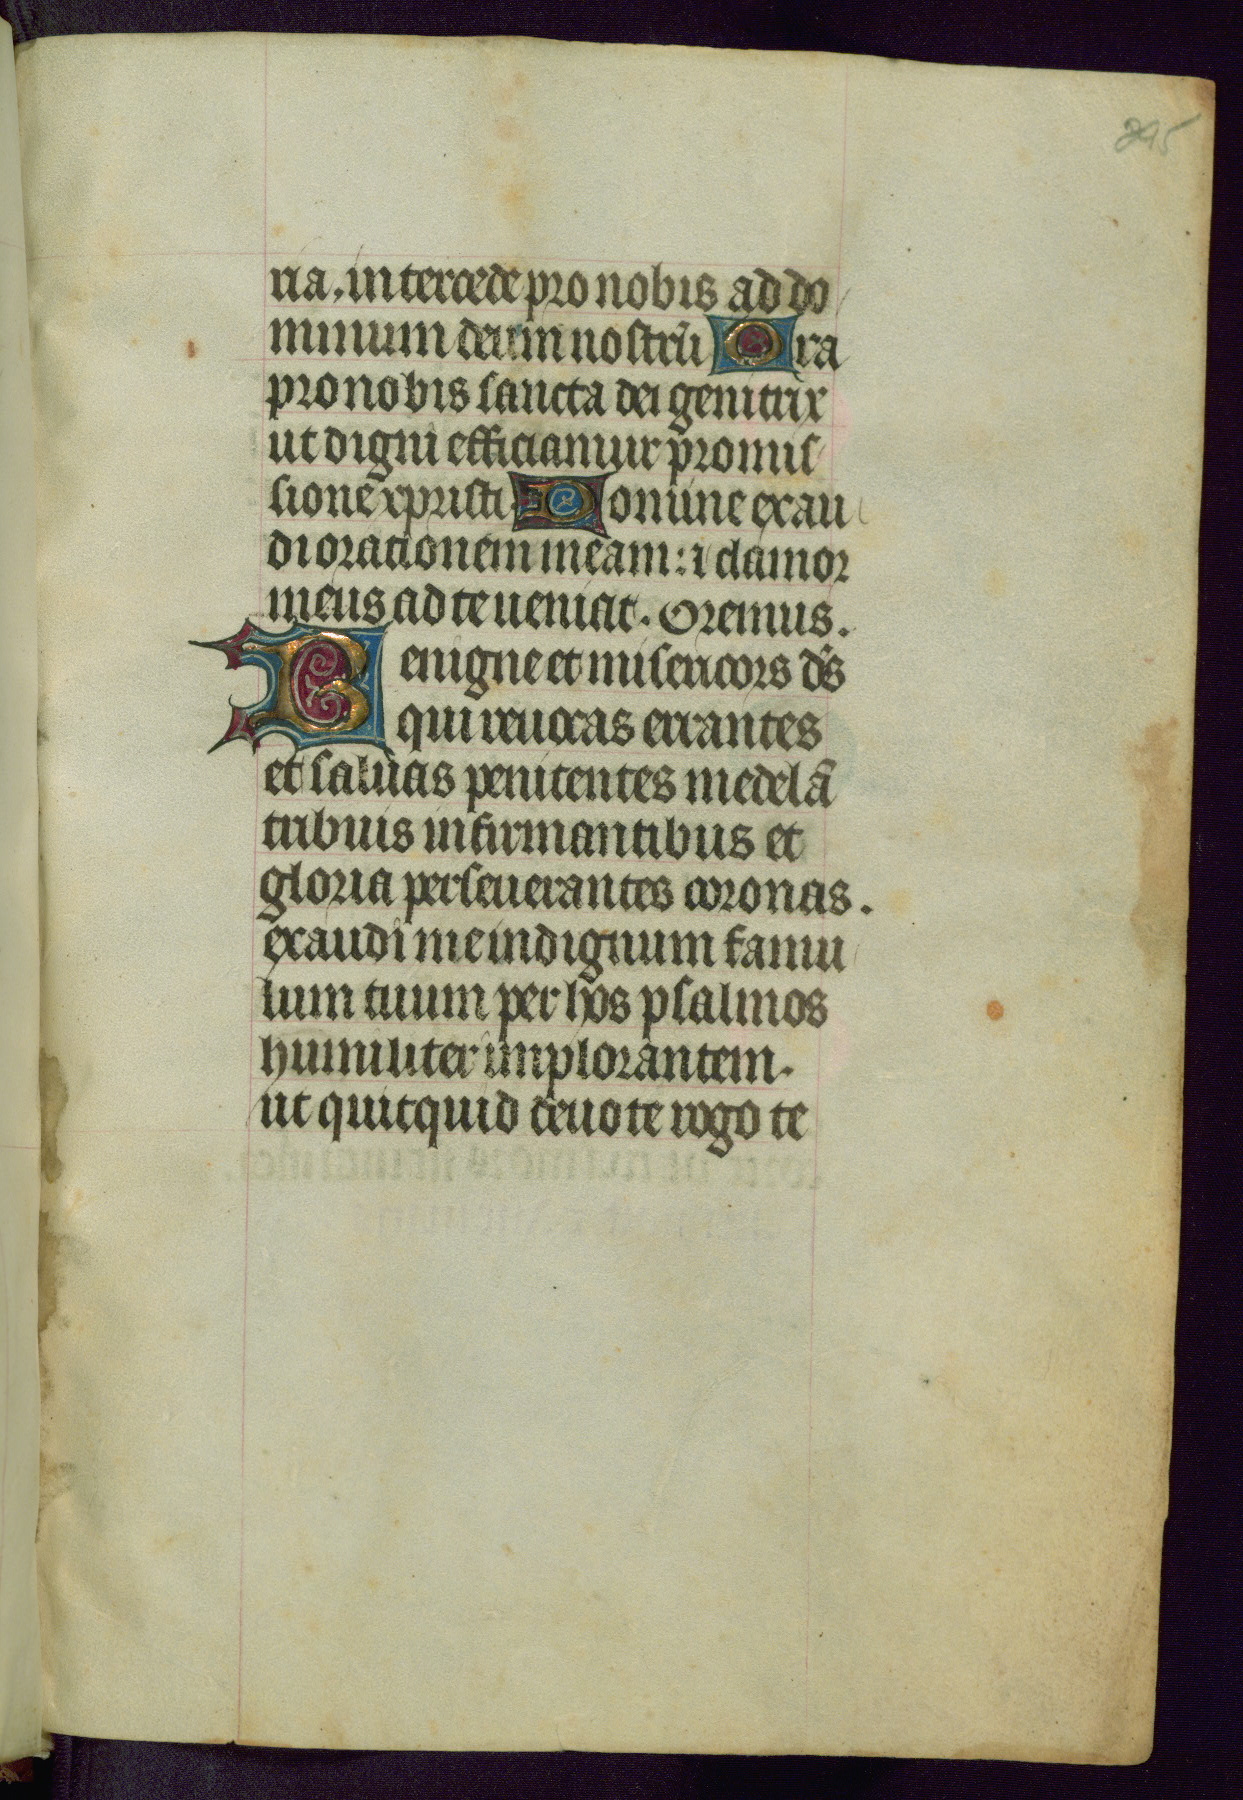 295
ria. intercede pro nobis ad do
minum deum nostrū Ora
pro nobis sancta dei genitrix
ut digni efficiamur promis
sione xpristi Domine exau
di orationem meam: ⁊ clamor
meus ad te ueniat. Oremus.
Benigne et misericors dn̄s
qui reuocas errantes
et saluas penitentes medelā
tribuis infirmantibus et
gloria perseuerantes coronas.
exaudi me indignum famu
lum tuum per hos psalmos
humiliter implorantem.
ut quitquid deuote rogo te